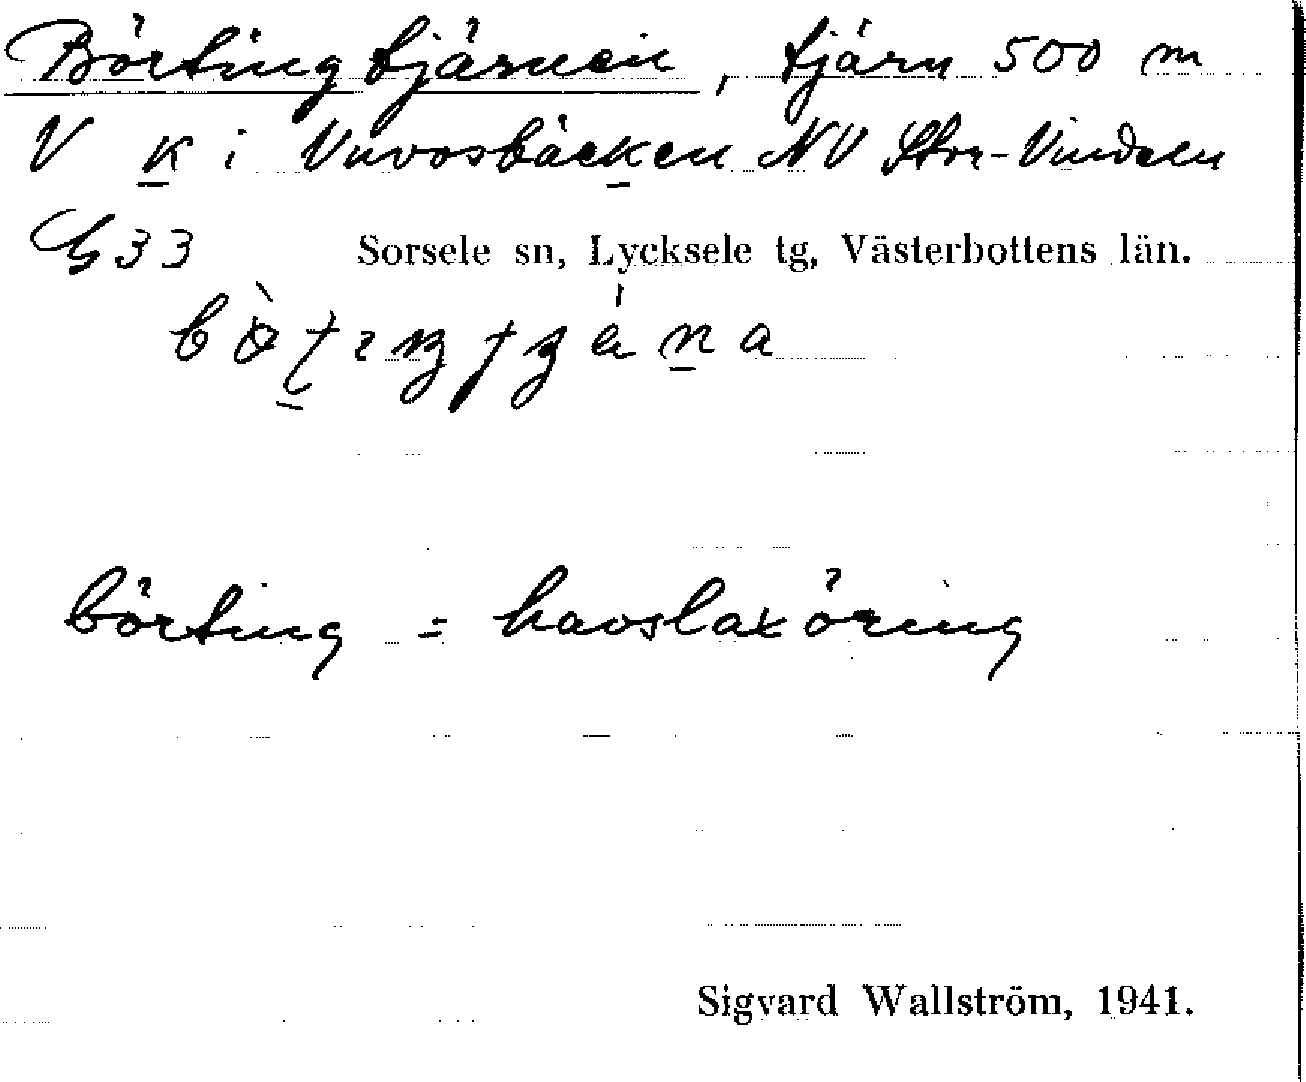 Börtingtjärnen, tjärn 500 m
V k i Vuvosbäcken NV Stor-Vindeln
G33 Sorsele sn, Lycksele tg, Västerbottens län.
börting = havslaxöring
Sigvard Wallström, 1941.